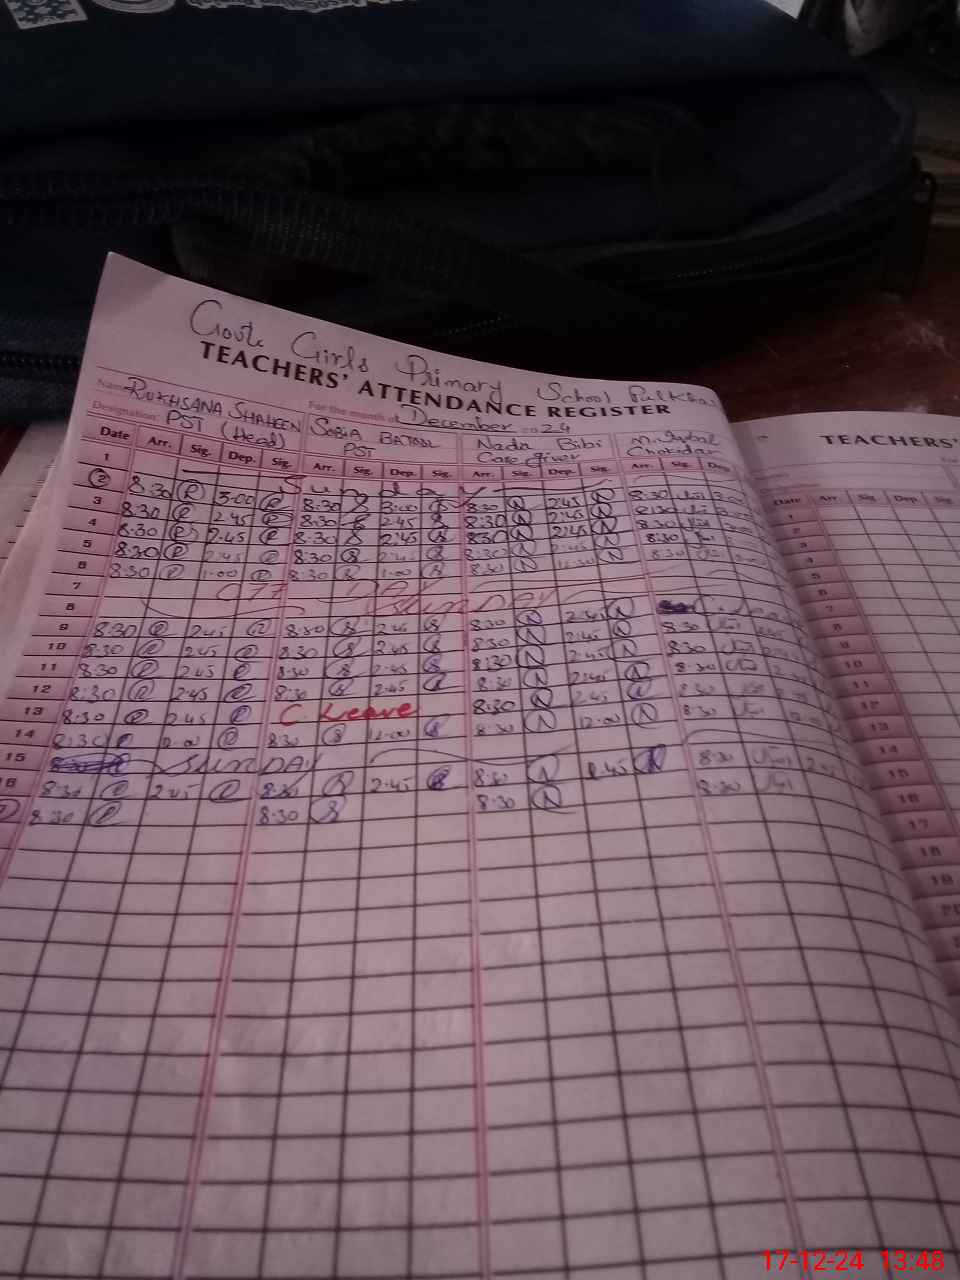 Govt. Girls Primary School
TEACHERS' ATTENDANCE REGISTER
Name RUKHSANA SHAHEEN For the month of December 2024
Designation: PST (Head) SOBIA BATOOL PST Nada Bibi Care giver M. Iqbal Chokidar
Date Arr. Sig. Dep. Sig. Arr. Sig. Dep. Sig. Arr. Sig. Dep. Sig. Arr. Sig. Dep.
1 Sunday
2 8:30 R 3:00 R 8:30 S 3:00 S 8:30 N 2:45 N 8:30
3 8:30 R 2:45 R 8:30 S 2:45 S 8:30 N 2:45 N 8:30
4 8:30 R 2:45 R 8:30 S 2:45 S 8:30 N 2:45 N 8:30
5 8:30 R 2:45 R 8:30 S 2:45 S 8:30 N 2:45 N 8:30
6 8:30 R 1:00 R 8:30 S 1:00 S 8:30 N 12:30 N
7 OFF DAY
8 Sun DAY
9 8:30 R 2:45 R 8:30 S 2:45 S 8:30 N 2:45 N C. Leave
10 8:30 R 2:45 R 8:30 S 2:45 S 8:30 N 2:45 N 8:30
11 8:30 R 2:45 R 8:30 S 2:45 S 8:30 N 2:45 N 8:30
12 8:30 R 2:45 R 8:30 S 2:45 S 8:30 N 2:45 N 8:30
13 8:30 R 2:45 R C. Leave 8:30 N 2:45 N 8:30
14 8:30 R 12:00 R 8:30 S 12:00 S 8:30 N 12:00 N 8:30
15 Sun DAY
16 8:30 R 2:45 R 8:30 S 2:45 S 8:30 N 2:45 N 8:30
8:30 R 8:30 S 8:30 N 8:30
TEACHERS'
Date Arr. Sig. Dep. Sig.
1
2
3
4
5
6
7
8
9
10
11
12
13
14
15
16
17
18
19
17-12-24 13:48